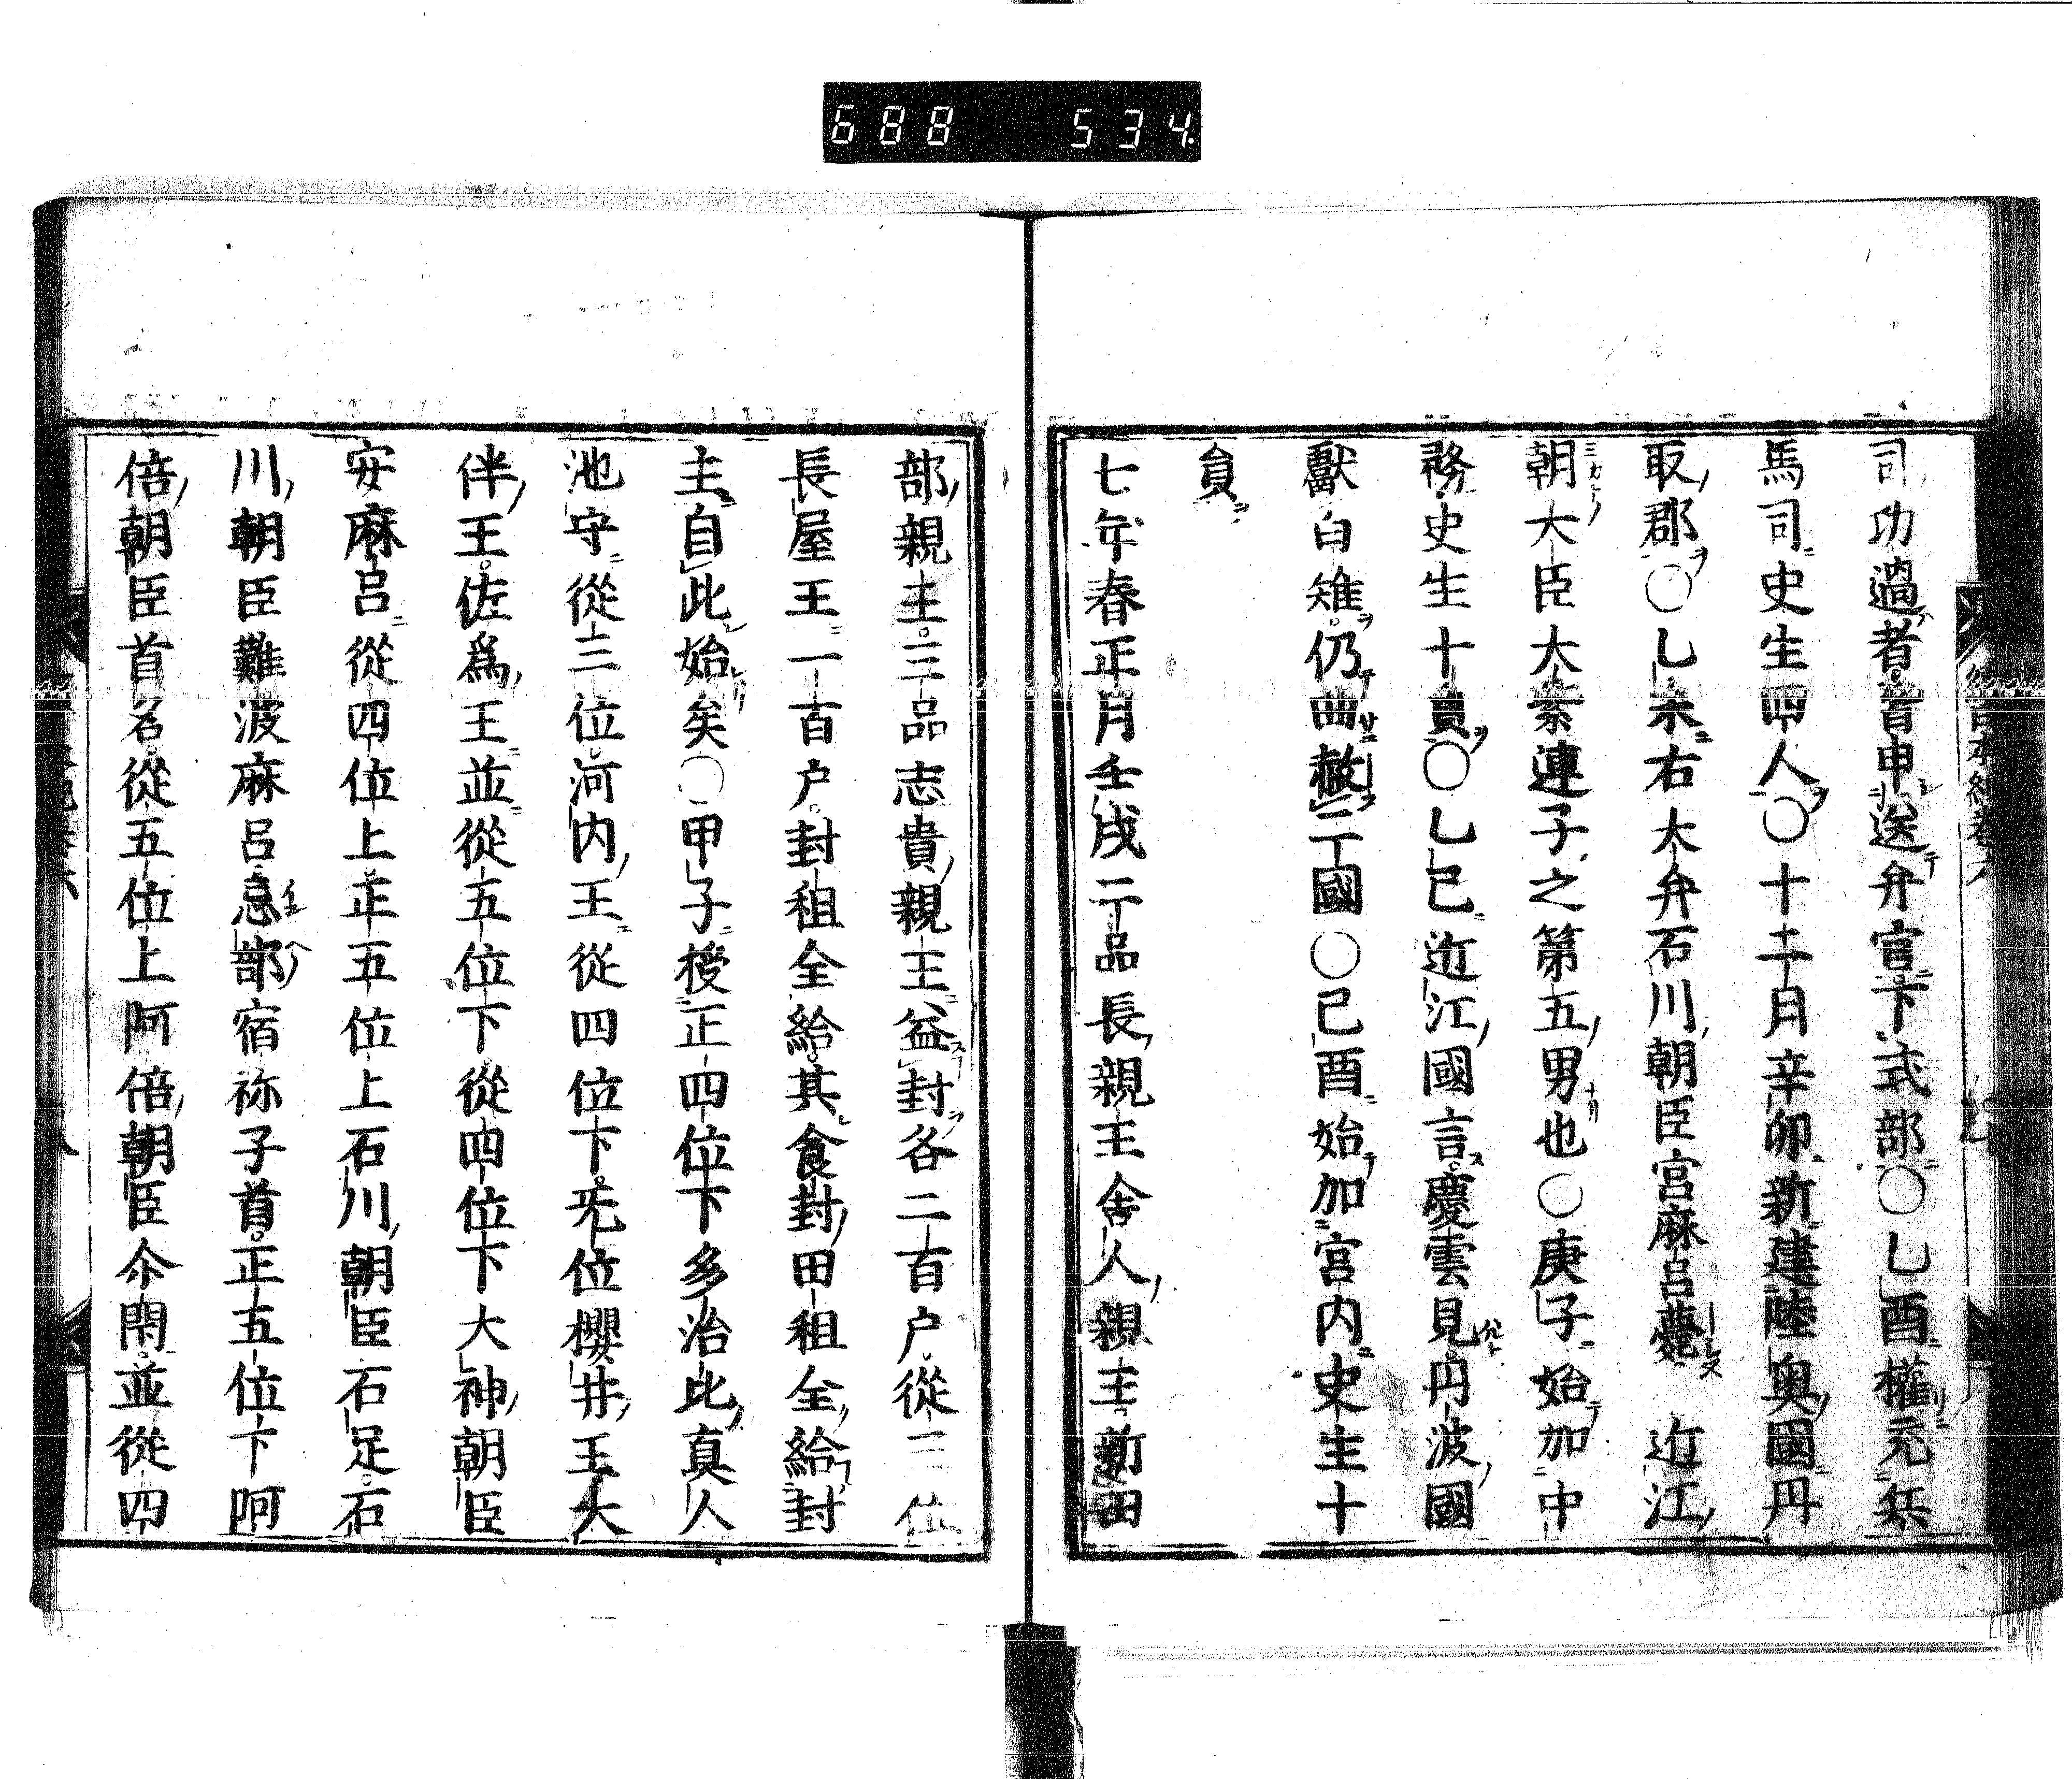 688 534
司功過者皆申送弁官下式部〇乙酉權充兵
馬司史生四人〇十二月辛卯新建陸奥國丹
取郡〇乙未右大弁石川朝臣宮麻呂薨 近江
朝大臣大紫連子之第五男也〇庚子始加中
務史生十員〇乙巳近江國言慶雲見丹波國
獻白雉仍曲赦二國〇己酉始加宮内史生十
員
七年春正月壬戌二品長親王舎人親王新田
部親王三品志貴親王益封各二百戸從三位
長屋王一百戸封租全給其食封田租全給封
主自此始矣〇甲子授正四位下多治比真人
池守從三位河内王從四位下无位櫻井王大
伴王佐爲王並從五位下從四位下大神朝臣
安麻呂從四位上正五位上石川朝臣石足石
川朝臣難波麻呂忌部宿祢子首正五位下阿
倍朝臣首名從五位上阿倍朝臣尒閇並從四